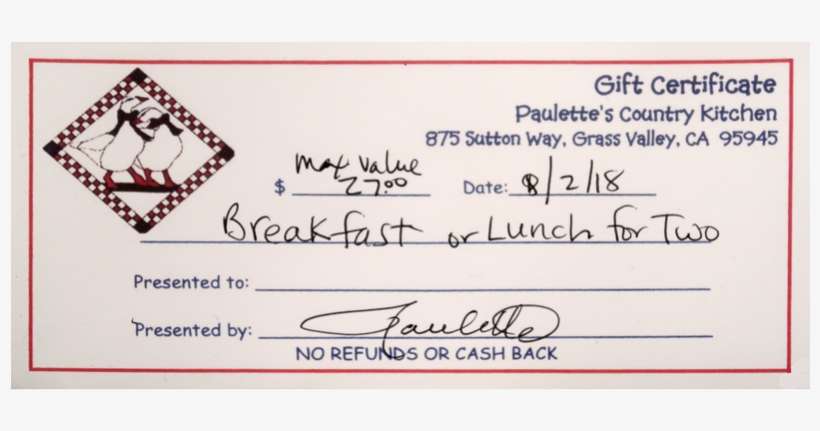 Gift Certificate
Paulette's Country Kitchen
875 Sutton Way, Grass Valley, CA 95945
max value
$ 27.00 Date: 8/2/18
Breakfast or Lunch for Two
Presented to:
Presented by: Paulette
NO REFUNDS OR CASH BACK